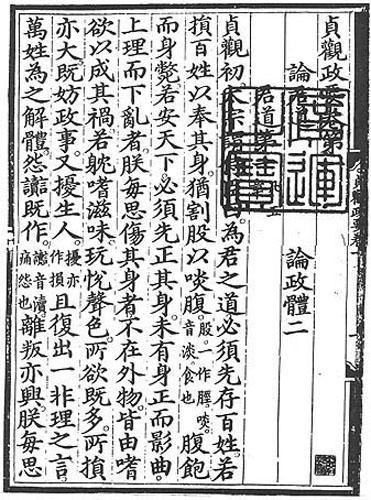 貞觀政要卷第
論君道 論政體二
君道第
貞觀初太宗謂侍臣曰。為君之道必須先存百姓。若
損百姓以奉其身。猶割股以啖腹。股。一作脛。啖。音淡。食也 腹飽
而身斃。若安天下。必須先正其身。未有身正而影曲。
上理而下亂者。朕每思傷其身者。不在外物。皆由嗜
欲以成其禍。若躭嗜滋味。玩悅聲色。所欲既多。所損
亦大。既妨政事。又擾生人。擾亦作損 且復出一非理之言。
萬姓為之解體。怨讟既作。讟音瀆。痛怨也 離叛亦興。朕每思